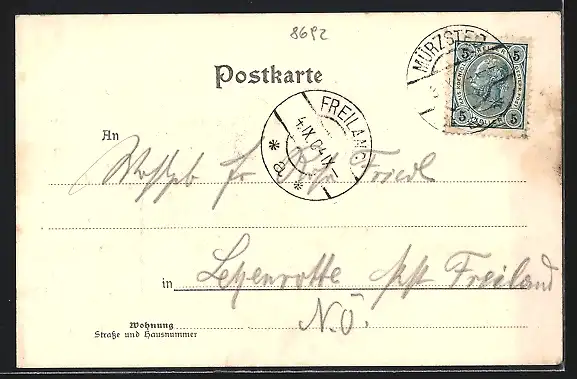 8692
Postkarte
MÜRZSTEG
5 5
5 5
FREILAND
4.IX.04.IX
* a *
An
Wohlgeb. Fr. Rosa Friedl
in Lehenrotte Pst Freiland
N.Ö.
Wohnung
Straße und Hausnummer